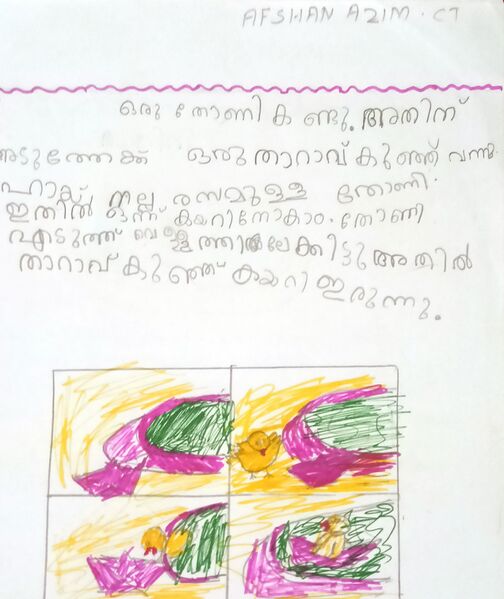 AFSHAN AZIM. C7
ഒരു തോണി കണ്ടു. അതിന്
അടുത്തേക്ക് ഒരു താറാവ് കുഞ്ഞ് വന്നു.
ഹായ് നല്ല രസമുള്ള തോണി.
ഇതിൽ ഒന്ന് കയറിനോകാം. തോണി
എടുത്ത് വെള്ളത്തിലേക്കിട്ടു അതിൽ
താറാവ് കുഞ്ഞ് കയറി ഇരുന്നു.